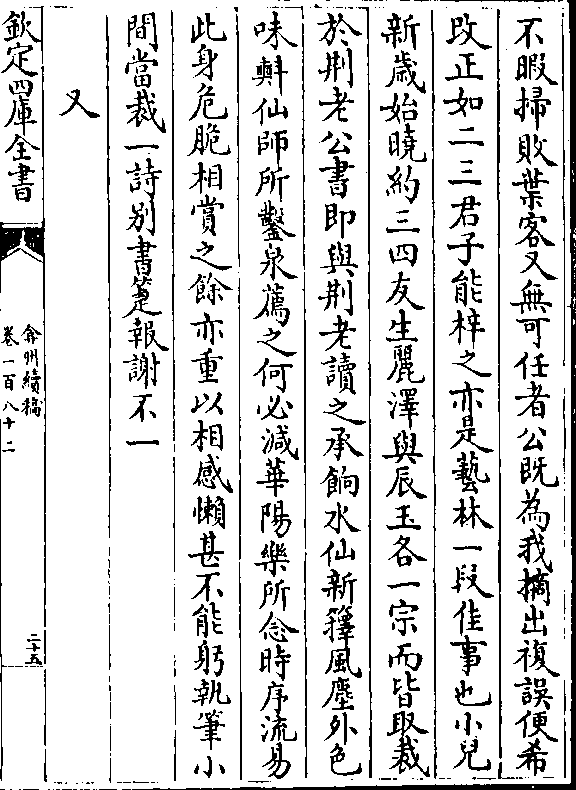 不暇掃敗葉客又無可任者公既為我摘出複誤便希
改正如二三君子能梓之亦是藝林一段佳事也小兒
新歲始曉約三四友生麗澤與辰玉各一宗而皆取裁
於荆老公書即與荆老讀之承餉水仙新籜風塵外色
味㪺仙師所鑿泉薦之何必減華陽樂所念時序流易
此身危脆相賞之餘亦重以相感懶甚不能躬執筆小
間當裁一詩别書箑報謝不一
又
欽定四庫全書
弇州續稿
卷一百八十二
二十五